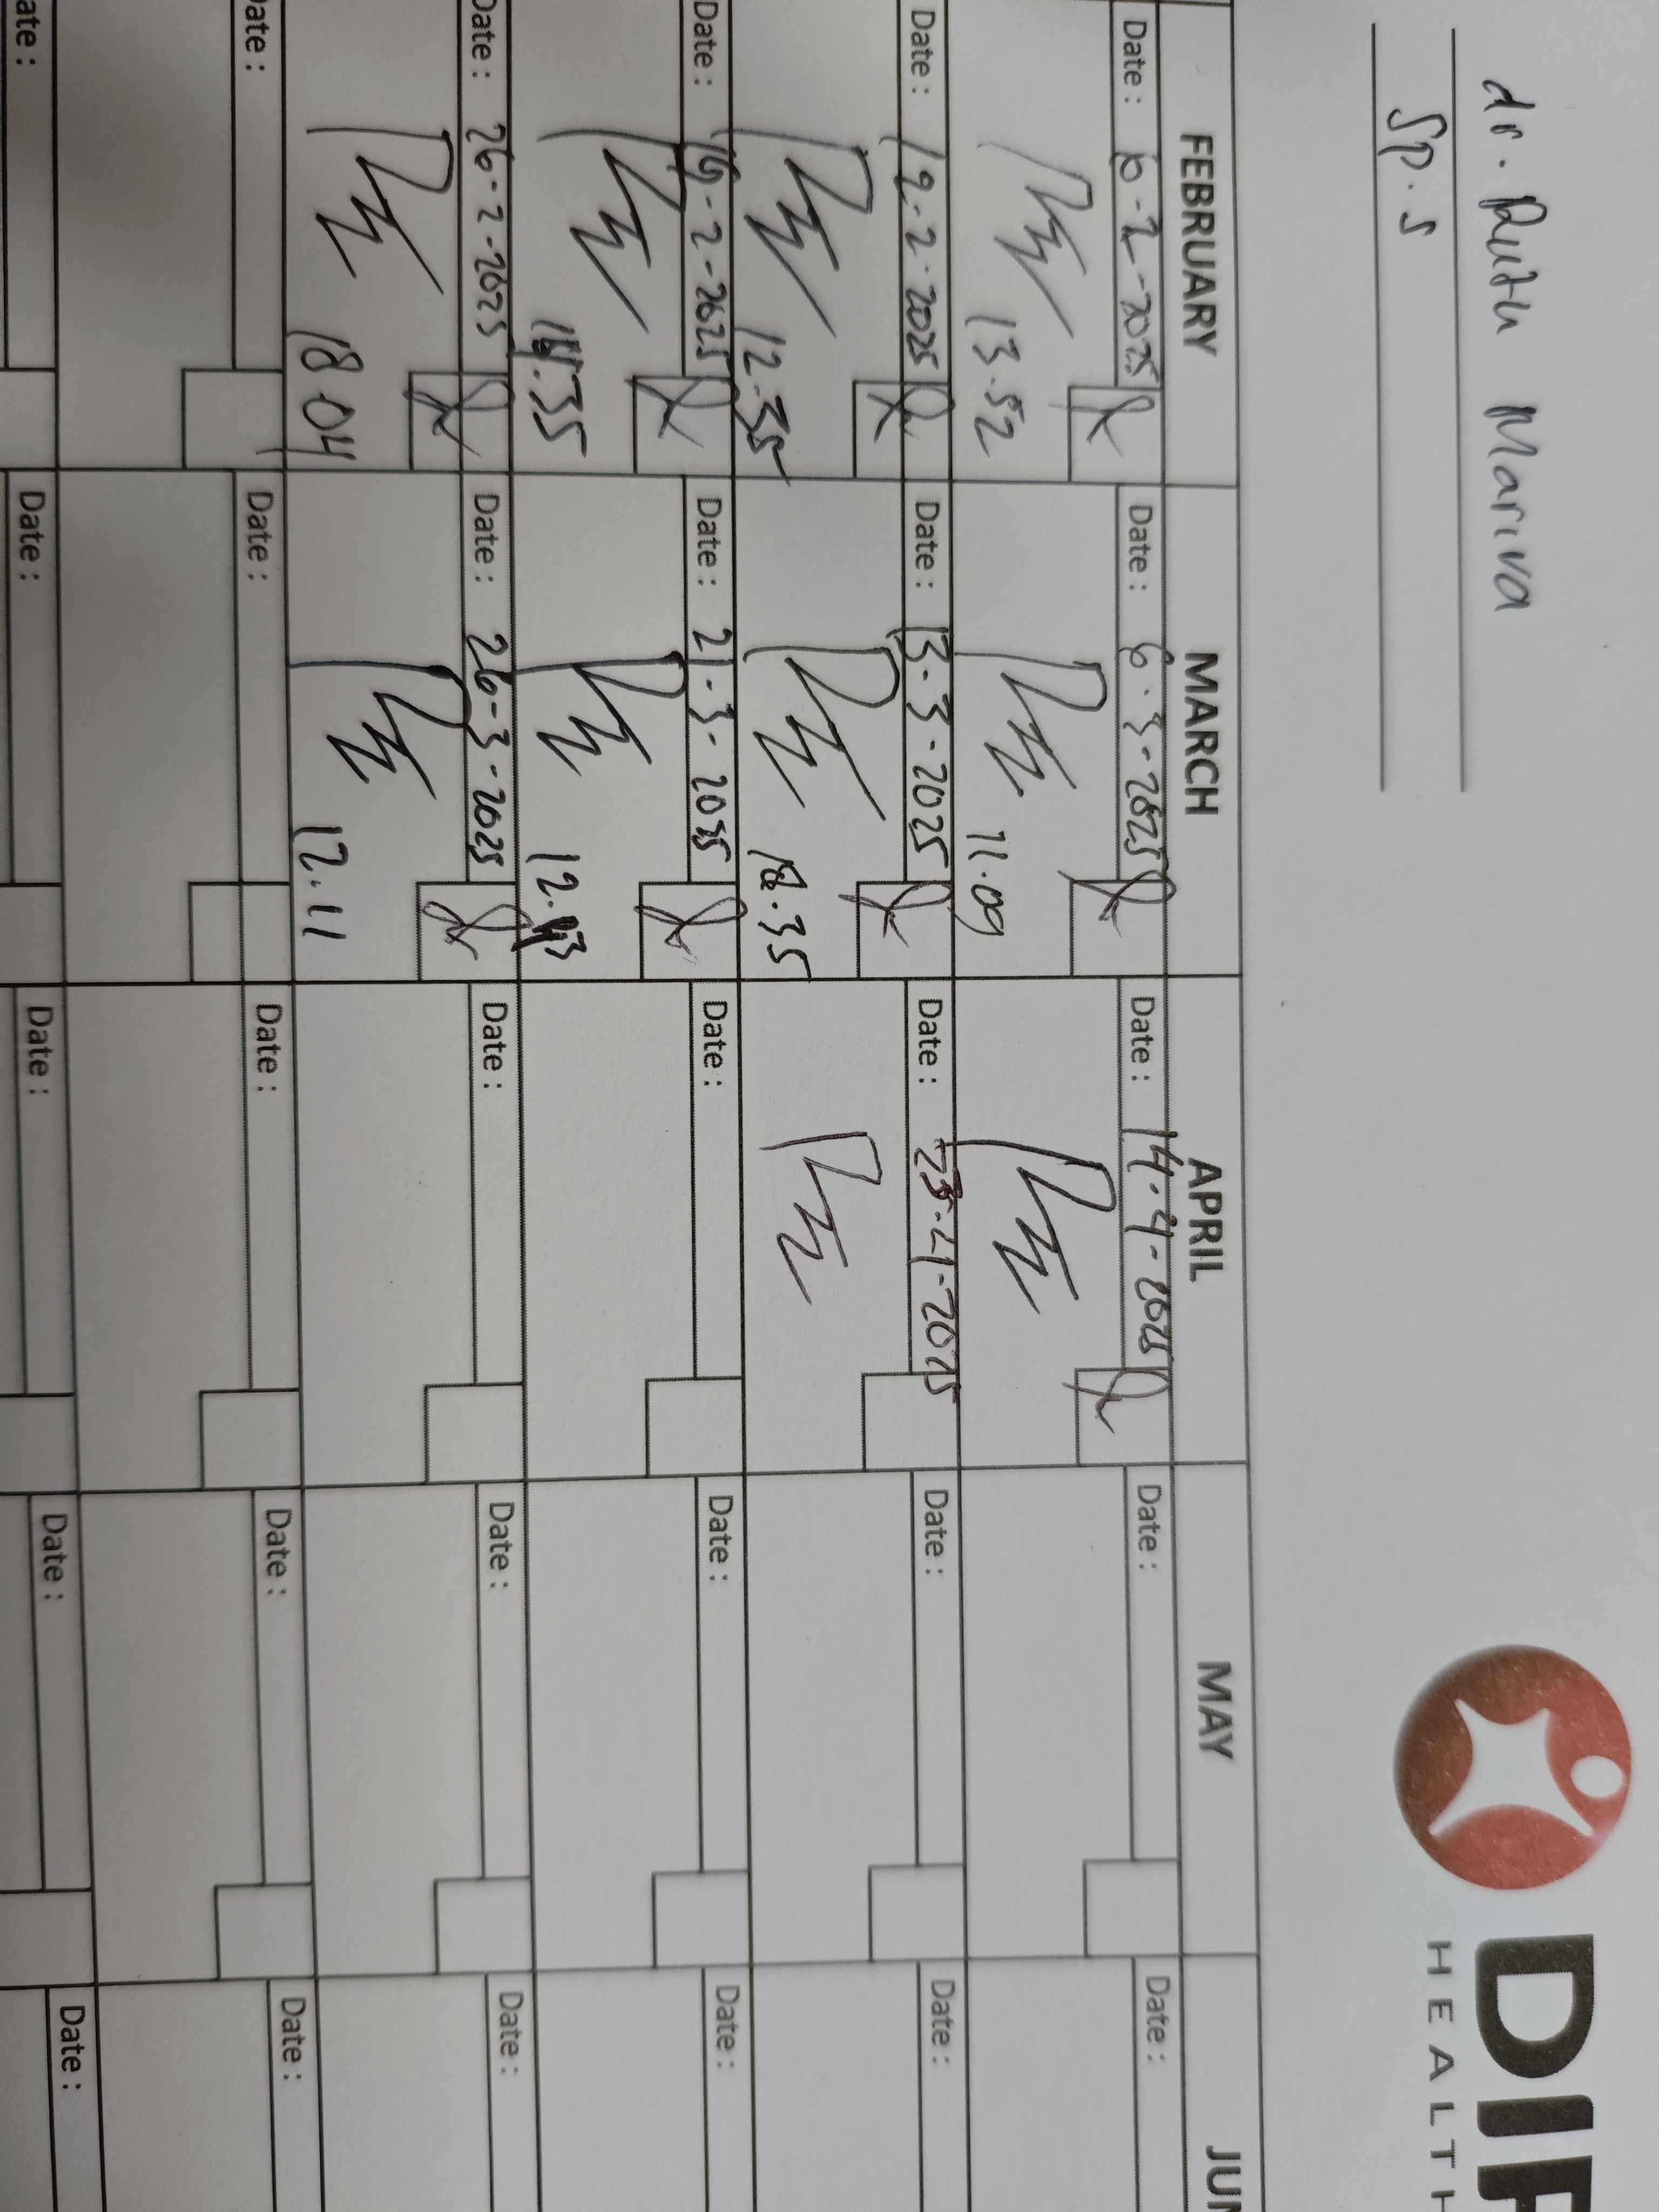 dr. Ruth Mariva
Sp. S
DIP
HEALTH
FEBRUARY MARCH APRIL MAY JUN
Date : 6-2-2025 Date : 6.3-2025 Date : 14.4-2025 Date : Date :
13.52 11.09
Date : 12.2.2025 Date : 13.3-2025 Date : 23-4-2025 Date : Date :
12.35 18.35
Date : 19-2-2025 Date : 21-3-2025 Date : Date : Date :
.35 12.
Date : 26-2-2025 Date : 26-3-2025 Date : Date : Date :
18 04 12.11
Date : Date : Date : Date : Date :
Date : Date : Date : Date : Date :